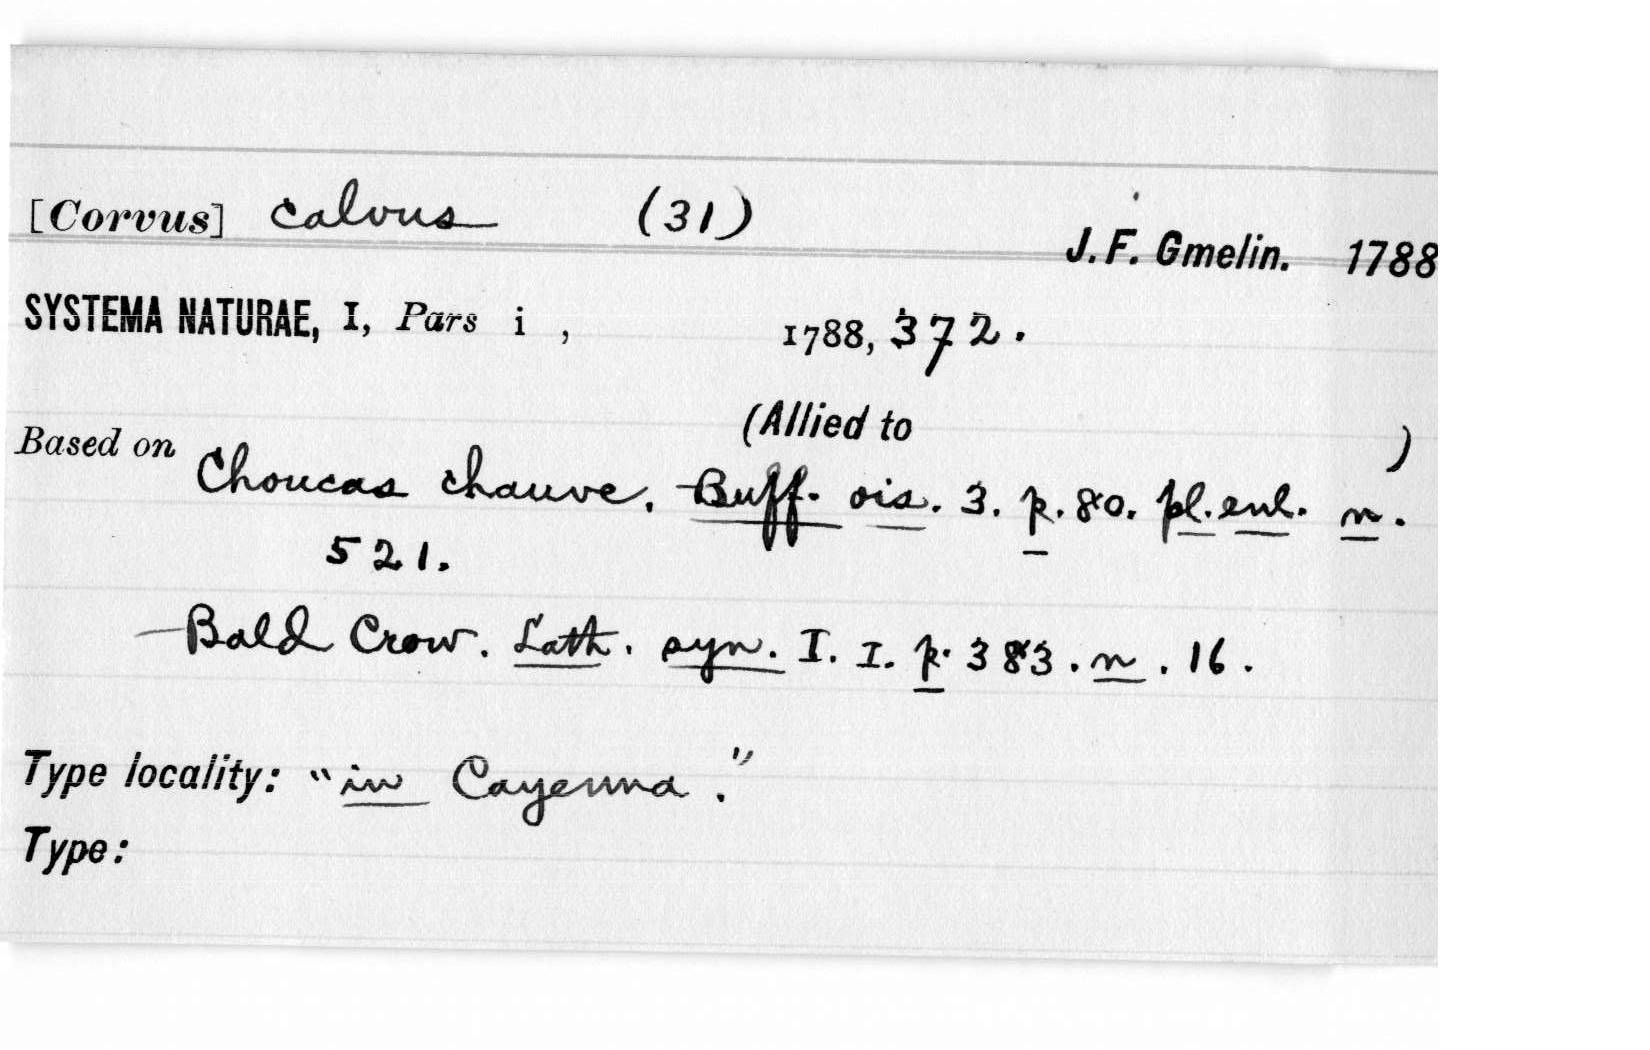 [Corvus] calvus (31)
J. F. Gmelin. 1788
SYSTEMA NATURAE, I, Pars i , 1788, 372.
(Allied to )
Based on Choucas chauve. Buff. ois. 3. p. 80. pl. enl. n.
521.
Bald Crow. Lath. syn. I. I. p. 383. n. 16.
Type locality: "in Cayenna."
Type: